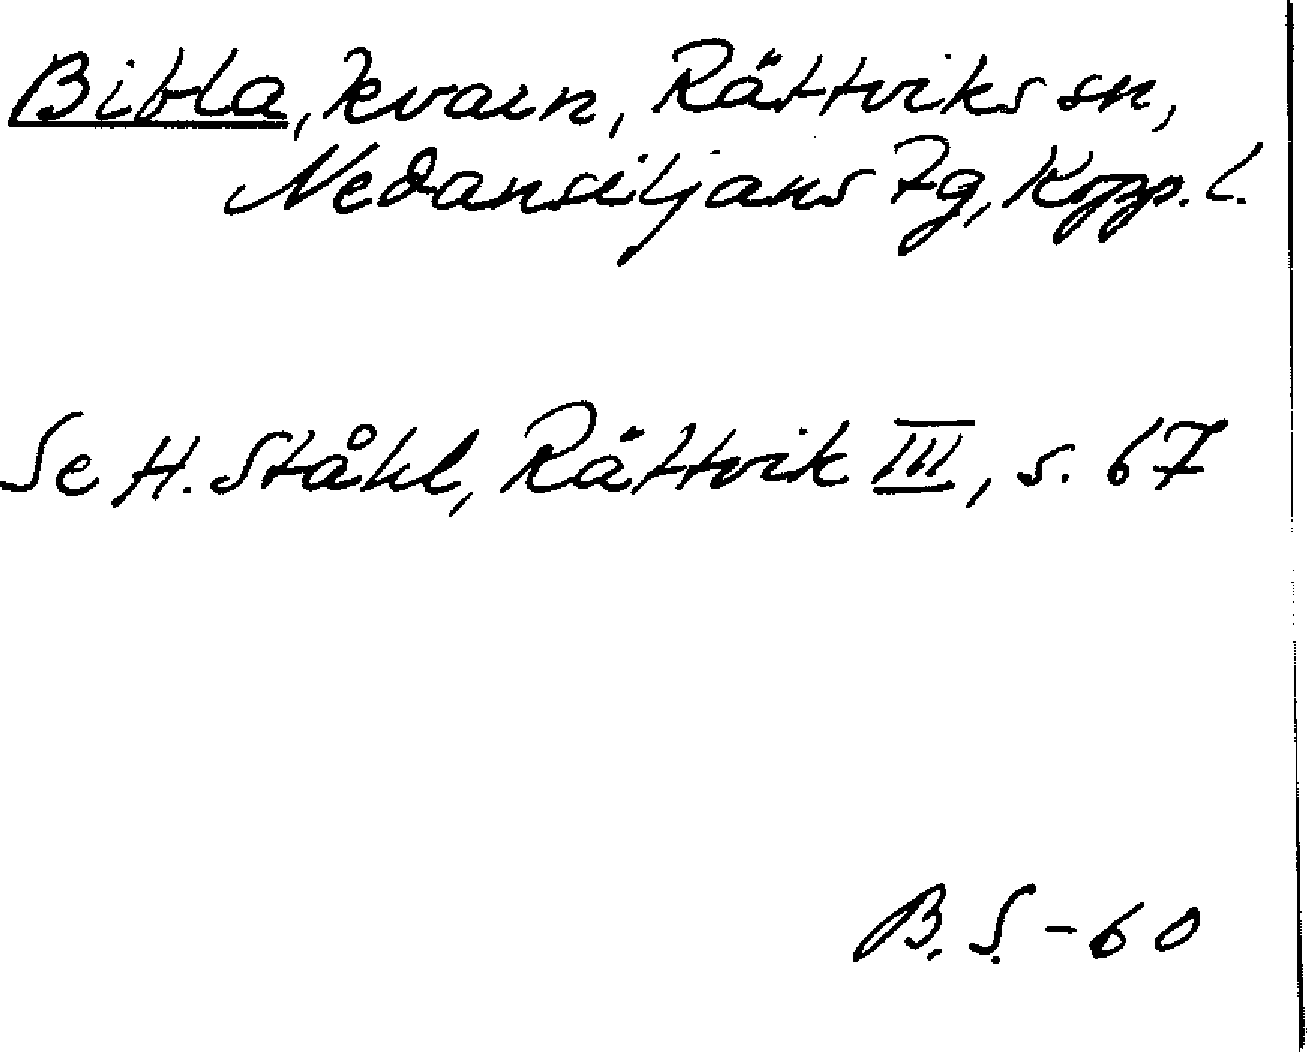 Bibla, kvarn, Rättviks sn,
Nedansiljans tg, Kopp. l.
Se H. Ståhl, Rättvik III, s. 67
B. S. - 60